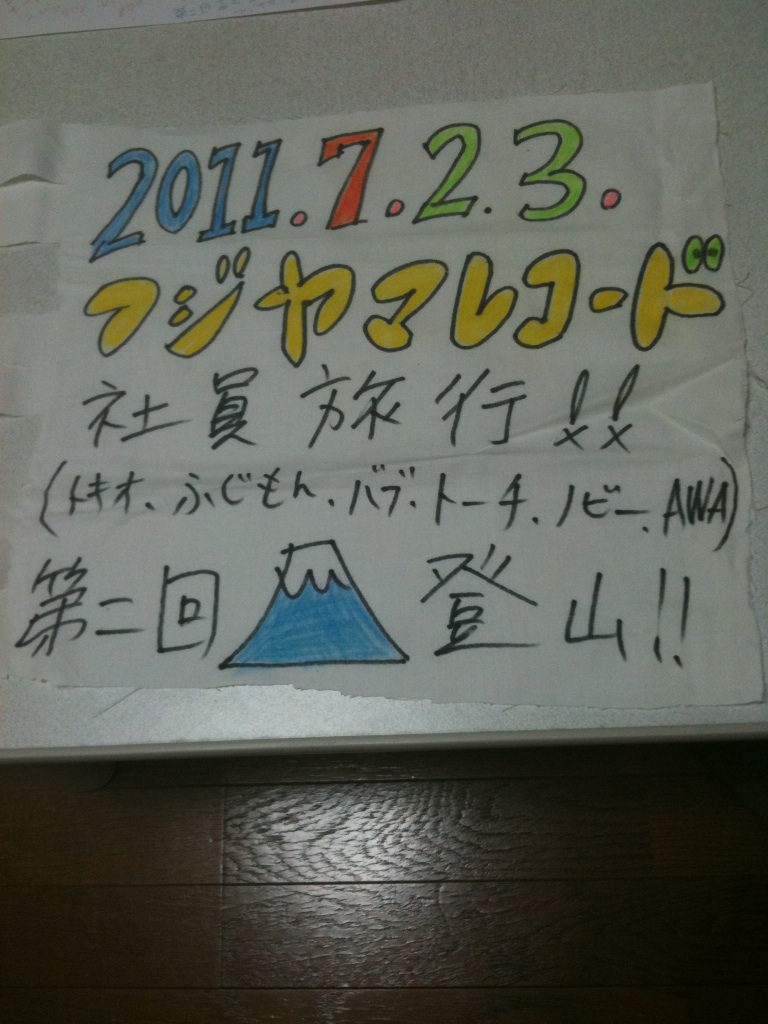 2011.7.2.3.
フジヤマレコード
社員旅行!!
(トキオ、ふじもん、バブ、トーチ、ノビー、AWA)
第二回登山!!